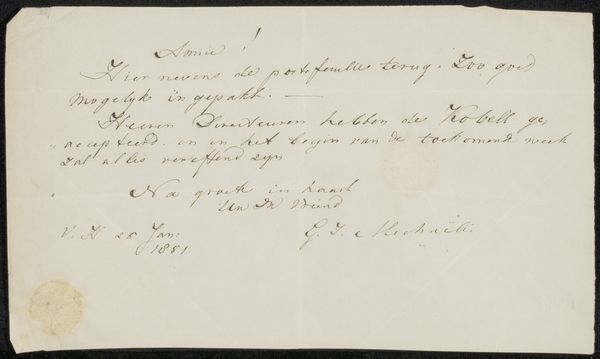 Amice!
Hier nevens de portefeuille terug. Zoo goed
mogelijk ingepakt. —
Heeren Directeuren hebben de Kobell ge,
„accepteerd. en in het begin van de toekomende week
zal alles vereffend zyn
Na groete in haast
Vriend
V. H 28 Jan:
1851
G. J. Michaëlis